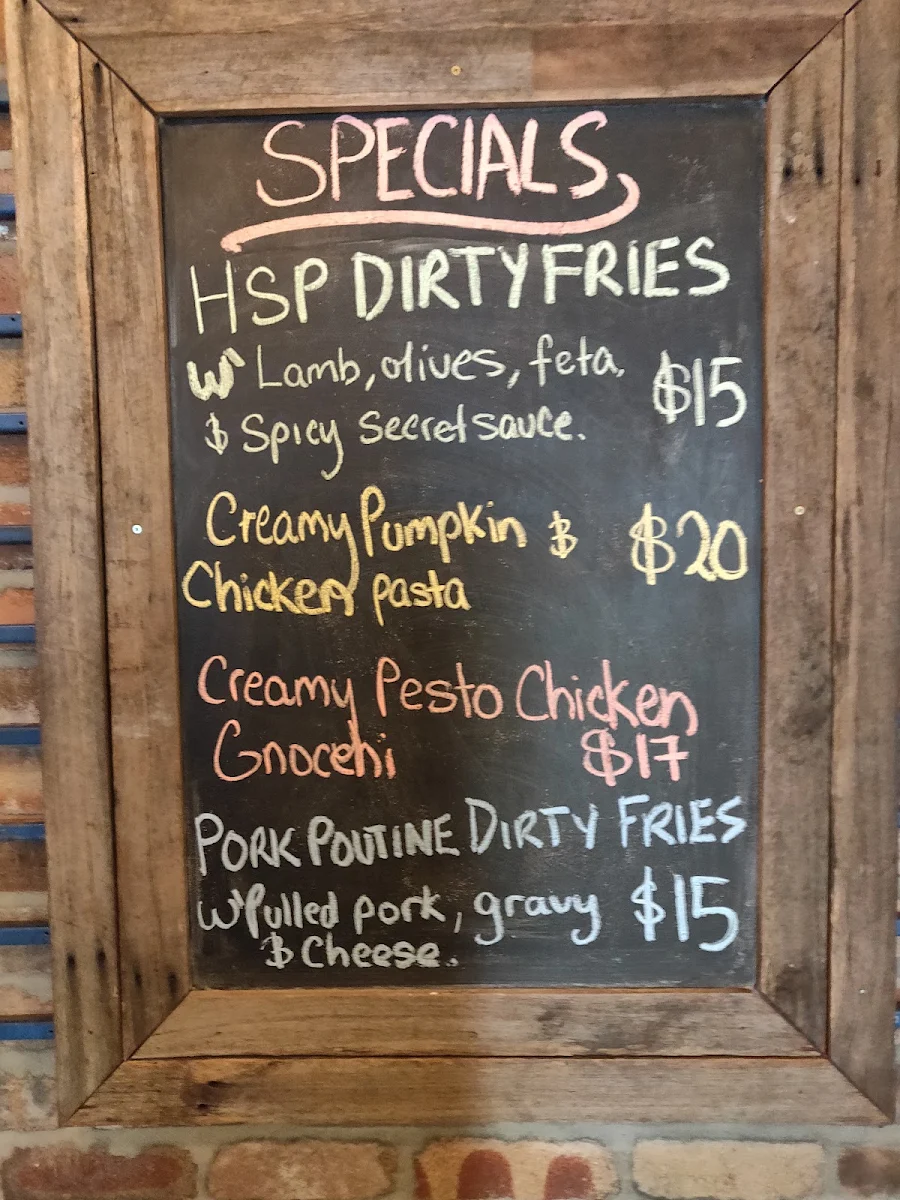 SPECIALS
HSP DIRTY FRIES
W' Lamb, olives, feta, $15
& Spicy Secret sauce.
Creamy Pumpkin & $20
Chicken pasta
Creamy Pesto Chicken
Gnocchi $17
PORK POUTINE DIRTY FRIES
W' Pulled pork, gravy $15
& Cheese.